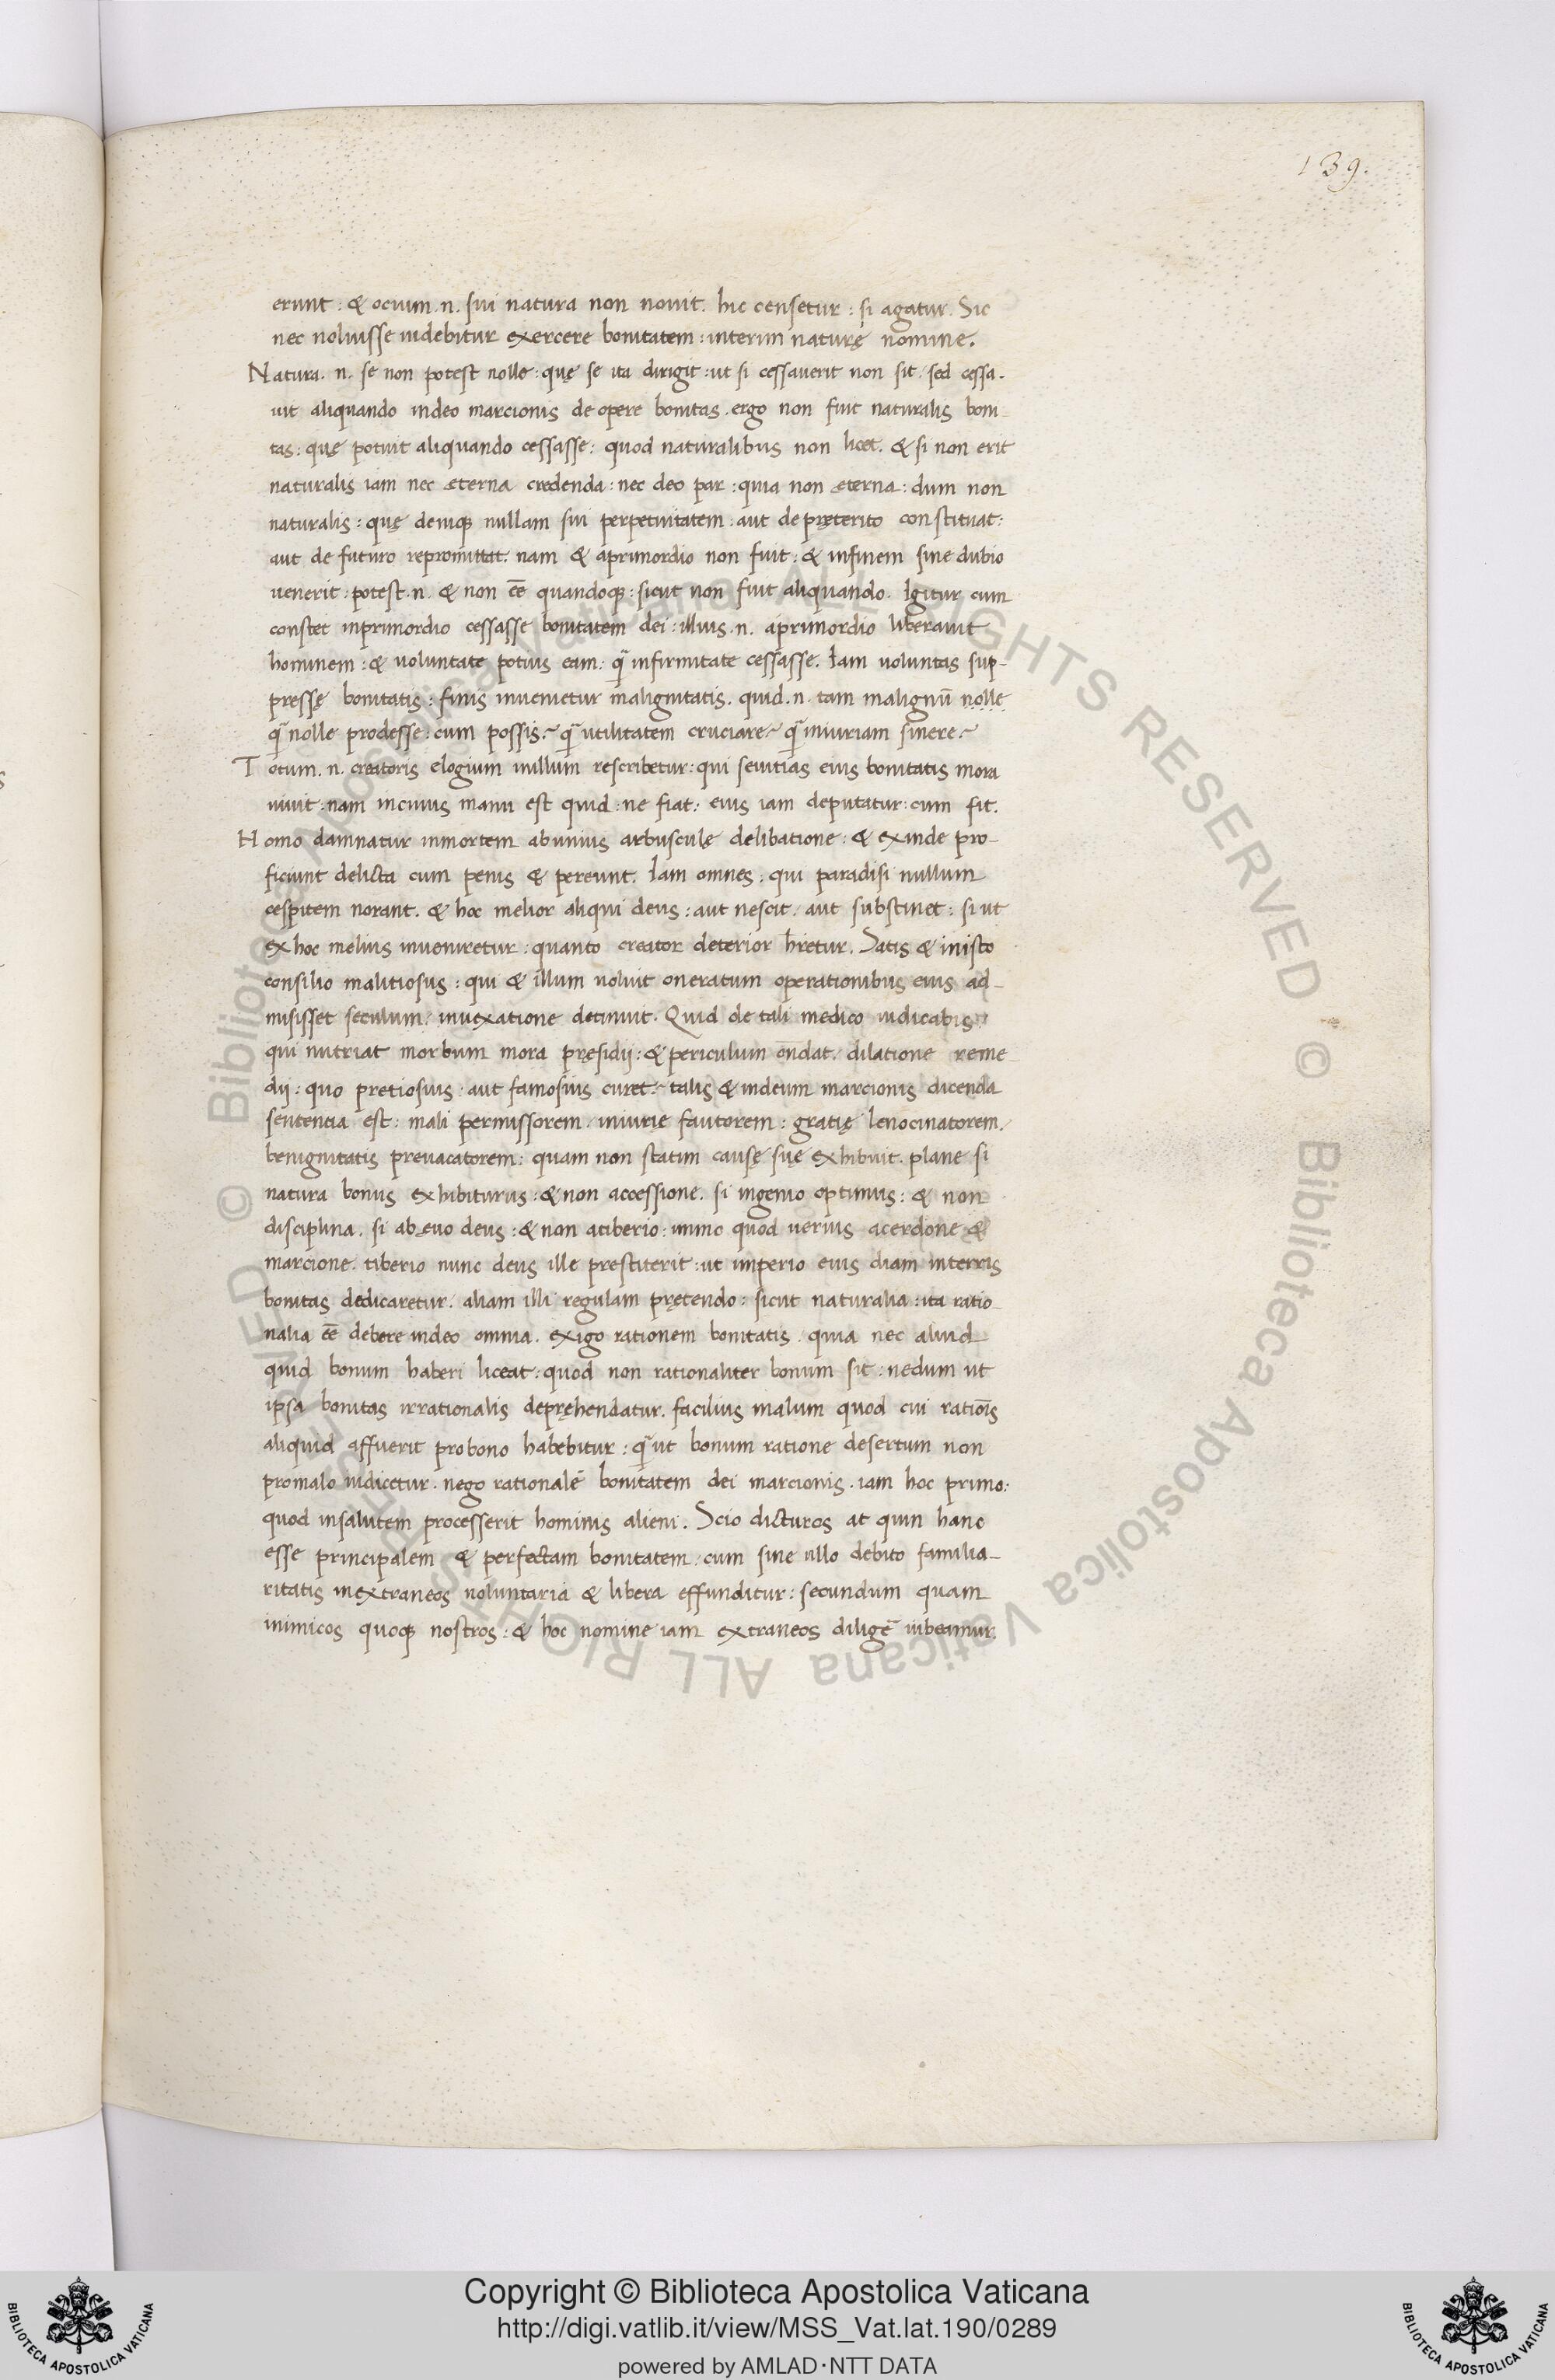 139.
erunt : & ocium .n. sui natura non nouit . hic censetur : si agatur . Sic
nec noluisse uidebitur exercere bonitatem : interim naturę nomine .
Natura . n . se non potest nolle : quę se ita dirigit : ut si cessauerit non sit . sed cessa-
uit aliquando indeo marcionis de opere bonitas . ergo non fuit naturalis boni-
tas : quę potuit aliquando cessasse : quod naturalibus non licet . & si non erit
naturalis iam nec ęterna credenda : nec deo par : quia non ęterna : dum non
naturalis : quę deniqꝫ nullam sui perpetuitatem : aut de pręterito constituat :
aut de futuro repromittat . nam & aprimordio non fuit : & infinem sine dubio
uenerit : potest .n. & non ēē quandoqꝫ : sicut non fuit aliquando . Igitur cum
constet inprimordio cessasse bonitatem dei : illius .n. aprimordio liberauit
hominem : & uoluntate potius eam : q̃ infirmitate cessasse . Iam uoluntas sup-
pressę bonitatis : finis inuenietur malignitatis . quid .n. tam malignū nolle
q̃ nolle prodesse : cum possis : q̃ utilitatem cruciare : q̃ iniuriam sinere :
Totum .n. creatoris elogium nullum rescribetur : qui seuitias eius bonitatis mora
uiuit : nam incuius manu est quid : ne fiat : eius iam deputatur : cum fit .
Homo damnatur inmortem abunius arbusculę delibatione : & exinde pro-
ficiunt delicta cum penis & pereunt . Iam omnes : qui paradisi nullum
cespitem norant . & hoc melior aliqui deus : aut nescit : aut substinet : si ut
ex hoc melius inueniretur : quanto creator deterior hr̄etur . Satis & inisto
consilio malitiosus : qui & illum uoluit oneratum operationibus eius ad-
misisset seculum : inuexatione detinuit . Quid de tali medico iudicabis
qui nutriat morbum mora pręsidij : & periculum ēndat : dilatione reme-
dij : quo pretiosius : aut famosius curet : talis & indeum marcionis dicenda
sententia est : mali permissorem : iniurię fautorem : gratię lenocinatorem .
benignitatis preuacatorem : quam non statim causę suę exhibuit . plane si
natura bonus exhibiturus : & non accessione . si ingenio optimus : & non
disciplina . si ab ęuo deus : & non atiberio : immo quod uerius acerdone &
marcione . tiberio nunc deus ille prestiterit : ut imperio eius diam interris
bonitas dedicaretur . aliam illi regulam prętendo : sicut naturalia : ita ratio-
nalia ēē debere indeo omnia . exigo rationem bonitatis . quia nec aliud
quid bonum haberi liceat : quod non rationaliter bonum sit : nedum ut
ipsa bonitas irrationalis depręhendatur . facilius malum quod cui ratiōis
aliquid affuerit probono habebitur : q̃ ut bonum ratione desertum non
promalo iudicetur . nego rationalē bonitatem dei marcionis . iam hoc primo :
quod insalutem processerit hominis alieni . Scio dicturos at quin hanc
esse principalem & perfectam bonitatem : cum sine ullo debito familia-
ritatis inextraneos uoluntaria & libera effunditur : secundum quam
inimicos quoqꝫ nostros : & hoc nomine iam extraneos diligē iubeamur .
© Biblioteca Apostolica Vaticana ALL RIGHTS RESERVED © Biblioteca Apostolica Vaticana ALL RIGHTS RESERVED
Copyright © Biblioteca Apostolica Vaticana
http://digi.vatlib.it/view/MSS_Vat.lat.190/0289
powered by AMLAD·NTT DATA
BIBLIOTECA APOSTOLICA VATICANA
BIBLIOTECA APOSTOLICA VATICANA